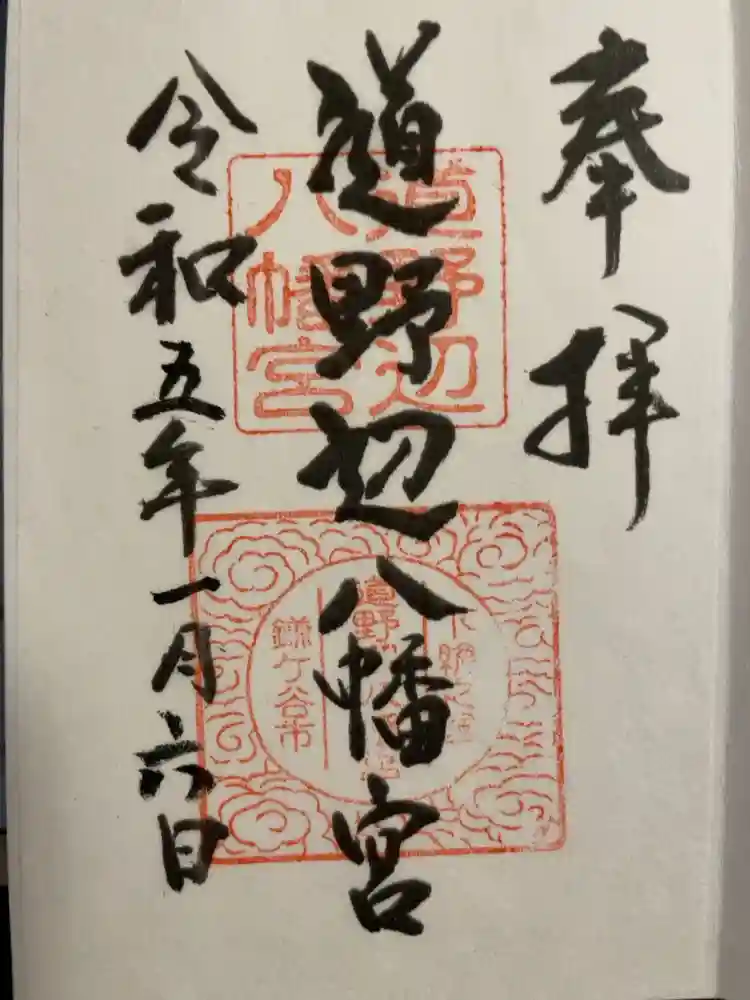 奉拝
道野辺八幡宮
令和五年一月六日
道野辺
八幡宮
下総之国
道野辺八幡宮
鎌ケ谷市